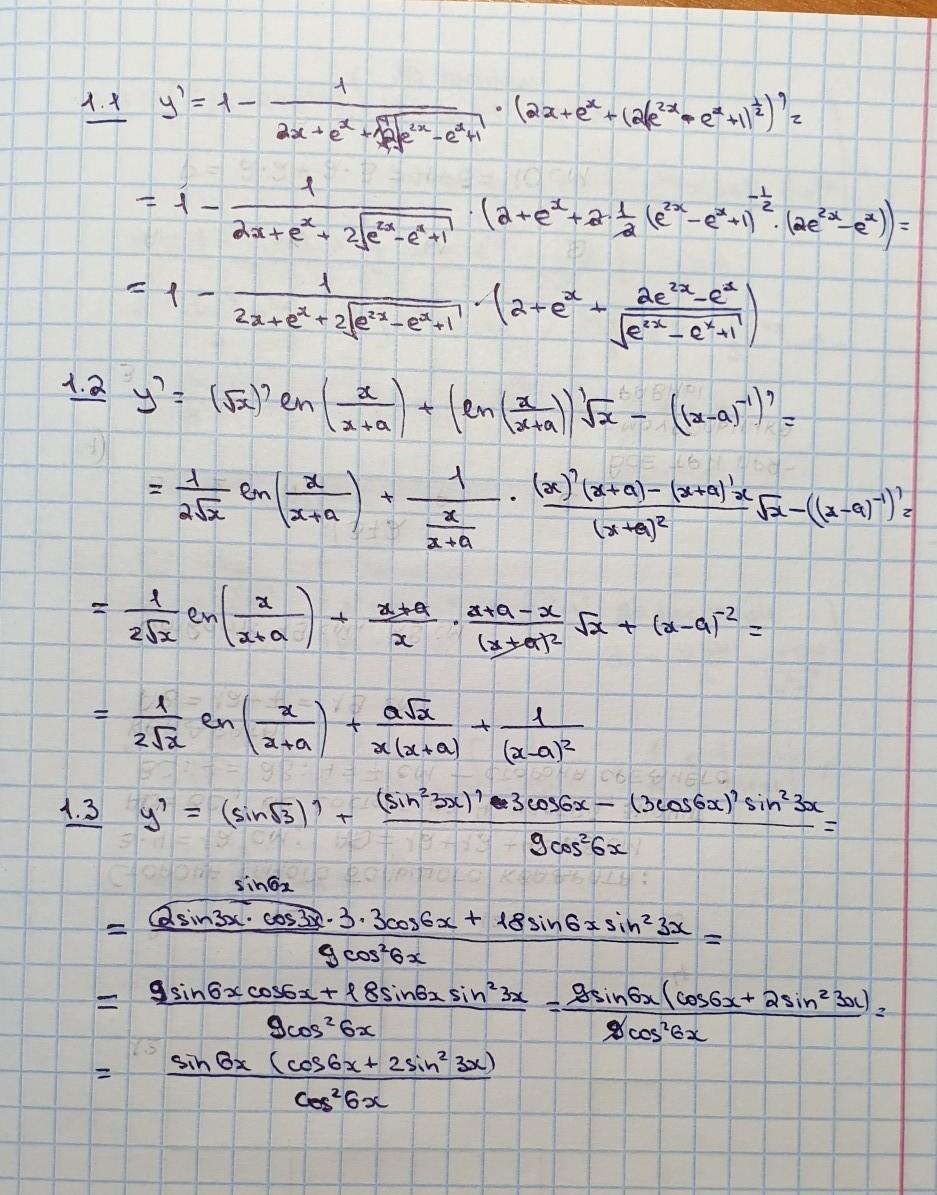 1.1 y' = 1 - 1/(2x + e^x + 2√(e^(2x) - e^x + 1)) · (2x + e^x + (2(e^(2x) - e^x + 1)^(1/2))' =
= 1 - 1/(2x + e^x + 2√(e^(2x) - e^x + 1)) · (2 + e^x + 2·1/2 (e^(2x) - e^x + 1)^(-1/2) · (2e^(2x) - e^x)) =
= 1 - 1/(2x + e^x + 2√(e^(2x) - e^x + 1)) · (2 + e^x + (2e^(2x) - e^x)/√(e^(2x) - e^x + 1))
1.2 y' = (√x)' ln(x/(x+a)) + (ln(x/(x+a)))' √x - ((x-a)^(-1))' =
= 1/(2√x) ln(x/(x+a)) + 1/(x/(x+a)) · ((x)'(x+a) - (x+a)'x)/(x+a)^2 √x - ((x-a)^(-1))' =
= 1/(2√x) ln(x/(x+a)) + (x+a)/x · (x+a-x)/(x+a)^2 √x + (x-a)^(-2) =
= 1/(2√x) ln(x/(x+a)) + a√x/(x(x+a)) + 1/(x-a)^2
1.3 y' = (sin√3)' + ((sin^2 3x)' 3cos6x - (3cos6x)' sin^2 3x)/(9cos^2 6x) =
sin6x
= (2sin3x · cos3x · 3 · 3cos6x + 18sin6x sin^2 3x)/(9cos^2 6x) =
= (9sin6x cos6x + 18sin6x sin^2 3x)/(9cos^2 6x) = 9sin6x(cos6x + 2sin^2 3x)/(9cos^2 6x) =
= sin6x (cos6x + 2sin^2 3x)/(cos^2 6x)